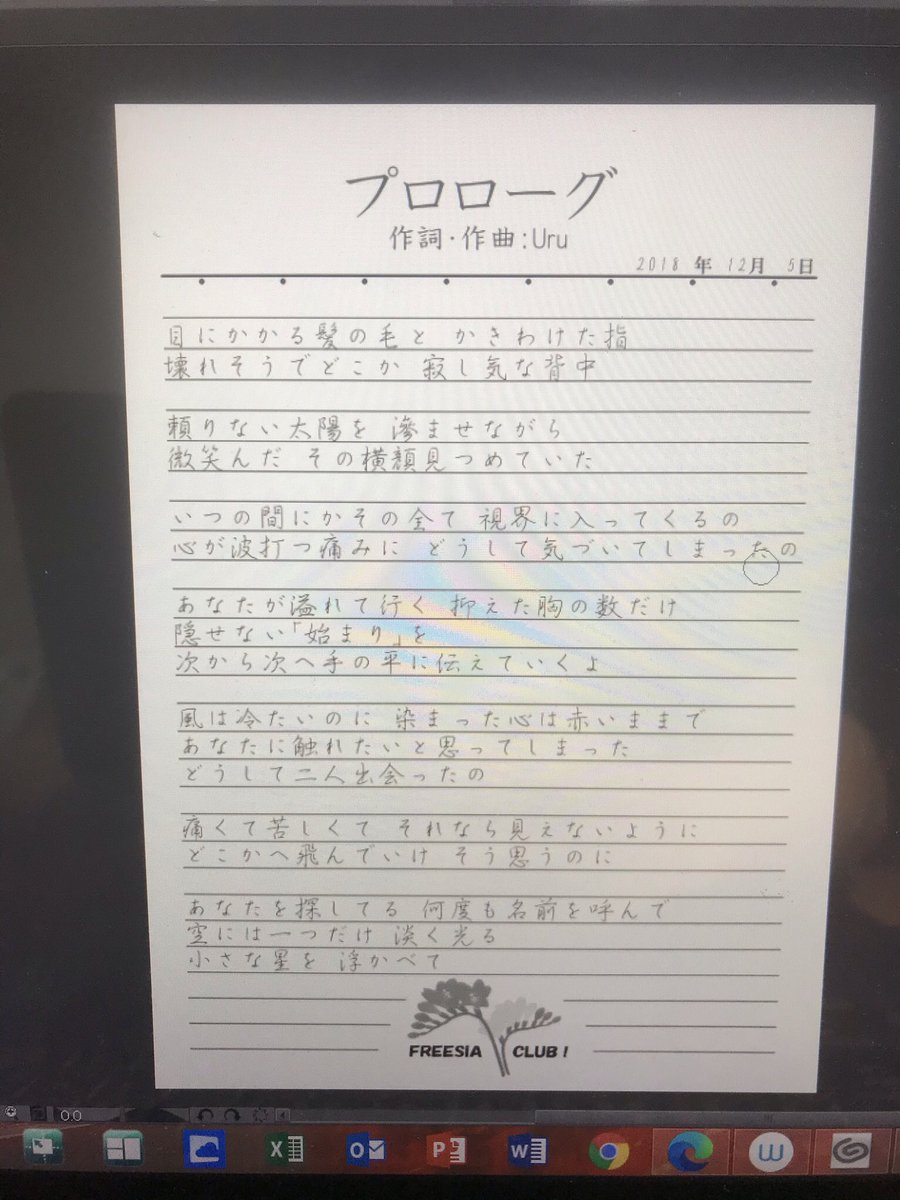 プロローグ
作詞・作曲:Uru
2018 年 12月 5日
目にかかる髪の毛と かきわけた指
壊れそうでどこか 寂し気な背中
頼りない太陽を 滲ませながら
微笑んだ その横顔見つめていた
いつの間にかその全て 視界に入ってくるの
心が波打つ痛みに どうして気づいてしまったの
あなたが溢れて行く 抑えた胸の数だけ
隠せない「始まり」を
次から次へ手の平に伝えていくよ
風は冷たいのに 染まった心は赤いままで
あなたに触れたいと思ってしまった
どうして二人出会ったの
痛くて苦しくて それなら見えないように
どこかへ飛んでいけ そう思うのに
あなたを探してる 何度も名前を呼んで
空には一つだけ 淡く光る
小さな星を 浮かべて
FREESIA CLUB!
0.0